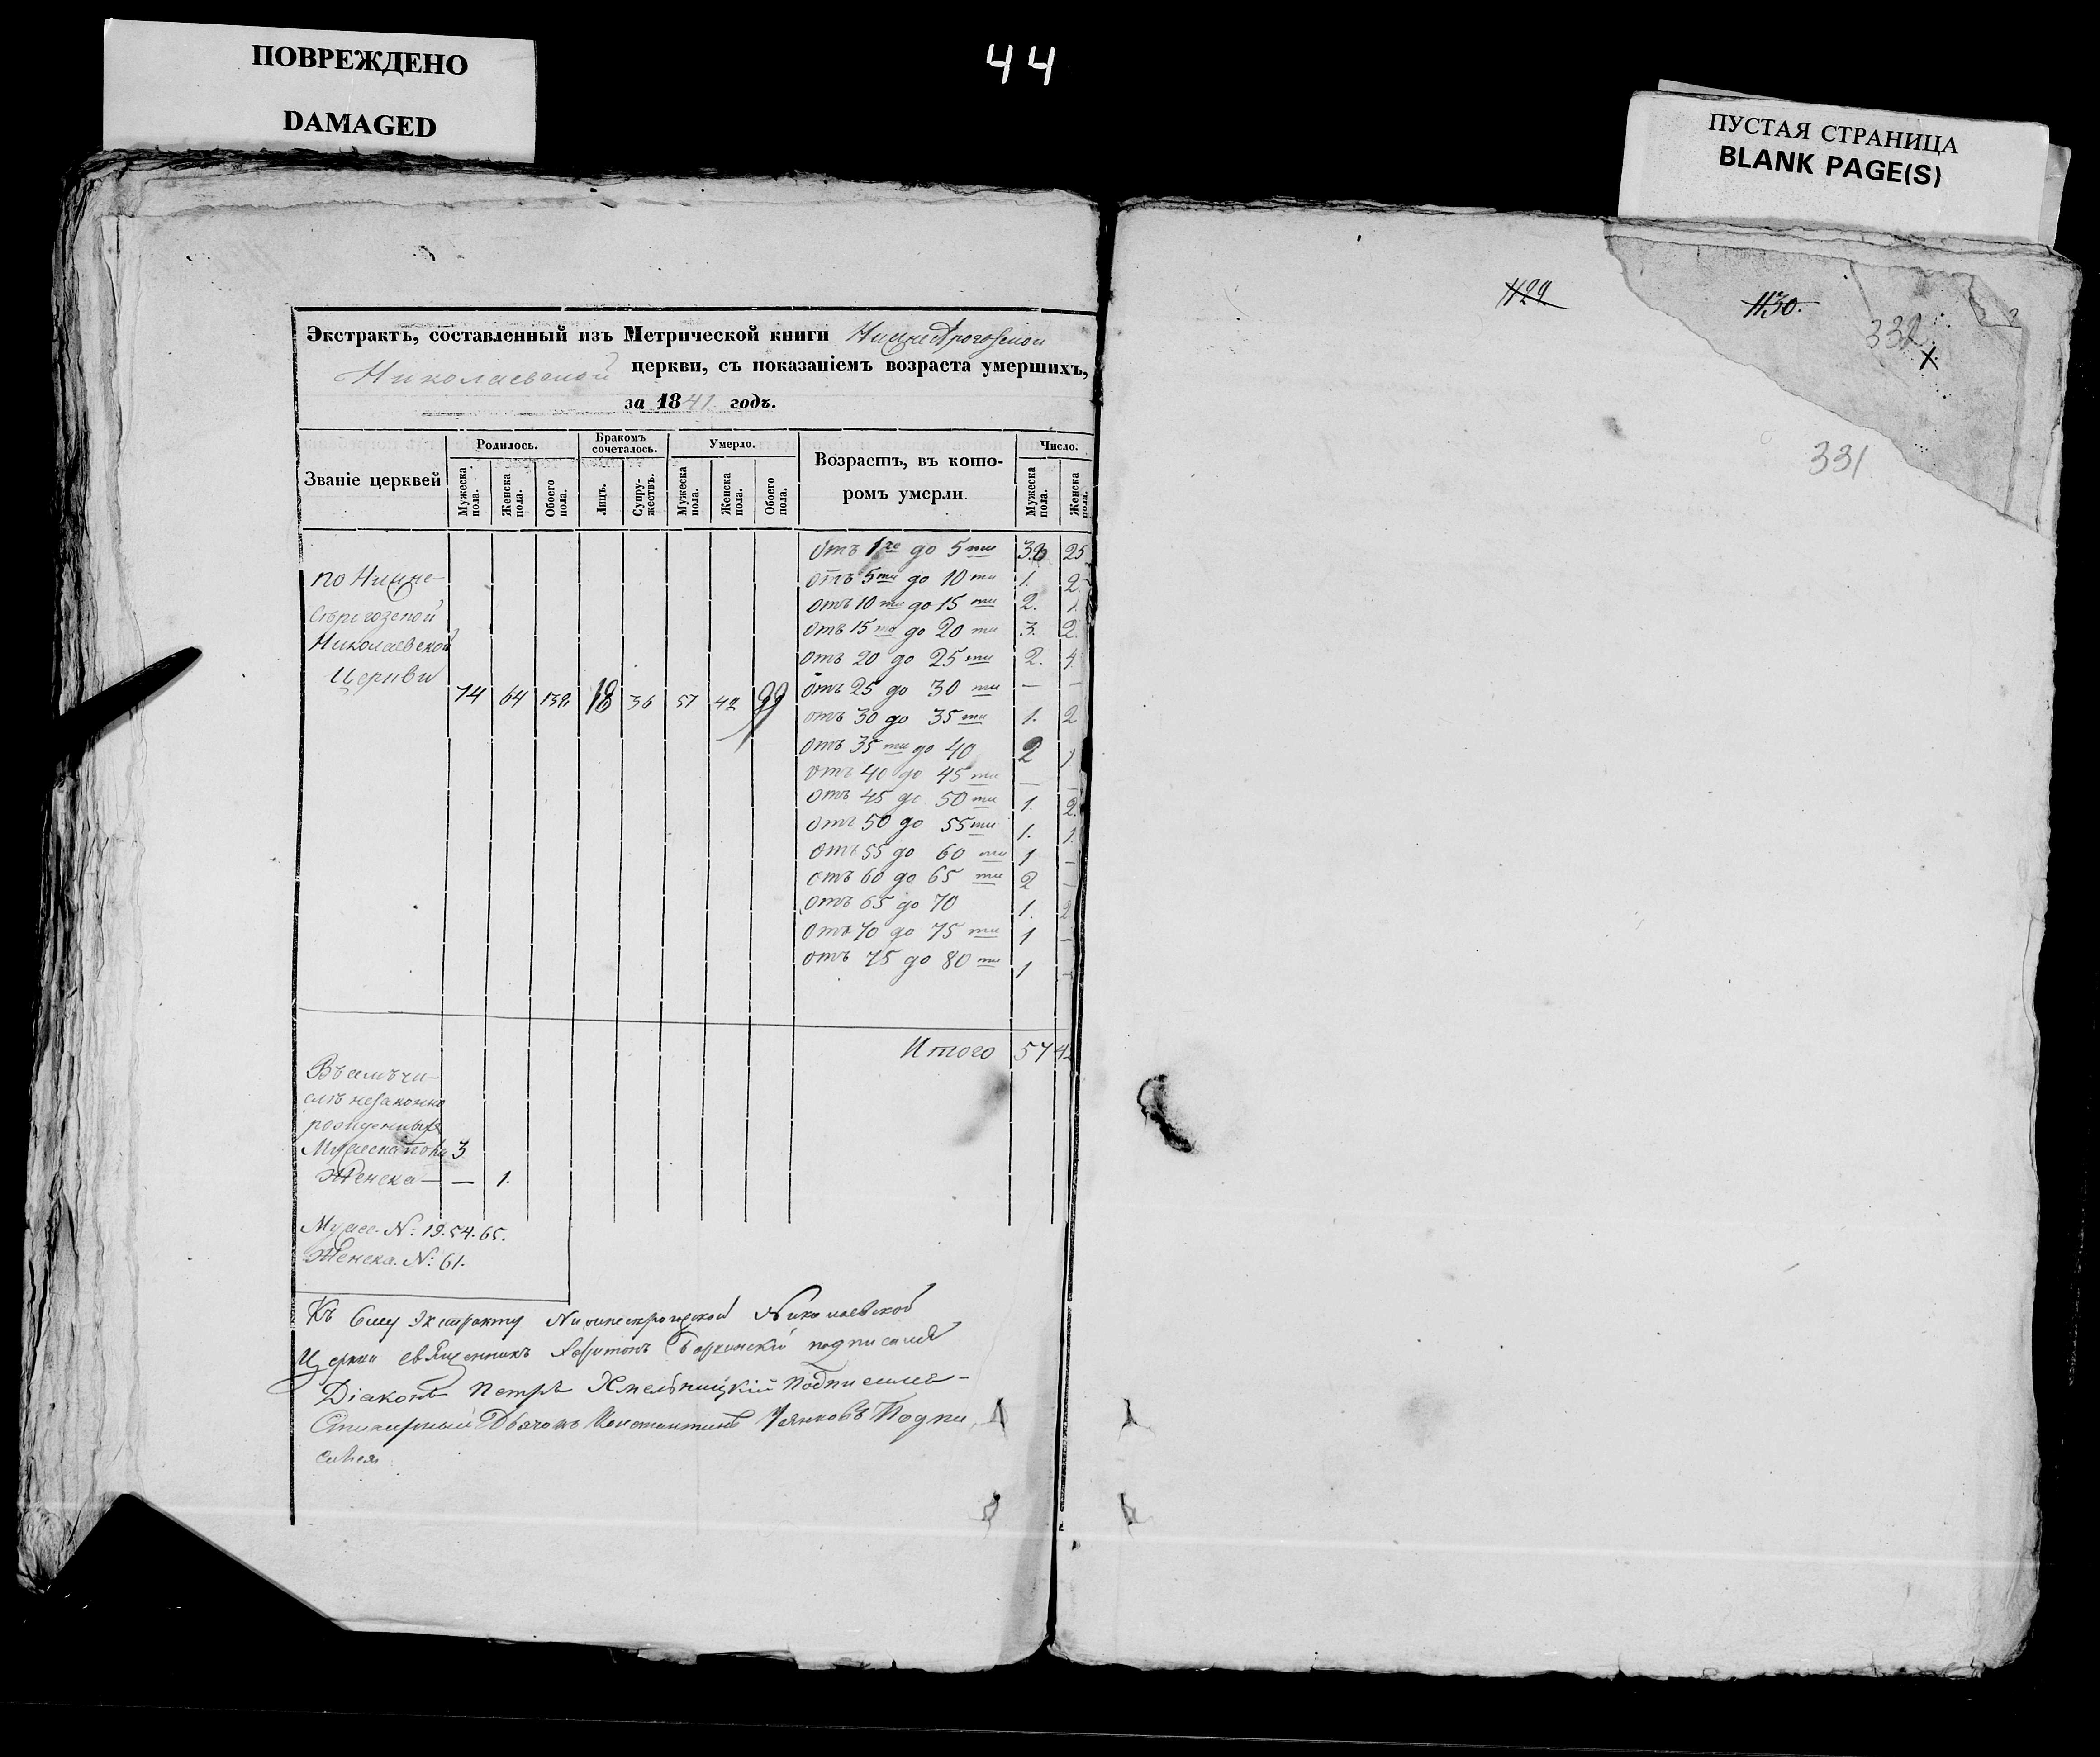 ПОВРЕЖДЕНО
DAMAGED
44
ПУСТАЯ СТРАНИЦА
BLANK PAGE(S)
Экстрактъ, составленный изъ Метрической книги
Николаевской церкви, съ показаніемъ возраста умершихъ,
за 1841 годъ.
Званіе церквей
Родилось.
Бракомъ сочеталось.
Умерло.
Возрастъ, въ которомъ умерли.
Число.
Мужеска пола.
Женска пола.
Обоего пола.
Лицъ.
Супружествъ.
Мужеска пола.
Женска пола.
Обоего пола.
Мужеска пола.
Женска пола.
по Нижне-
Николаевской
Церкви
74 64 138 18 36 57 42 99
отъ 1го до 5ти 38 25
отъ 5ти до 10ти 1. 2.
отъ 10ти до 15ти 2. 1.
отъ 15ти до 20ти 3. 2.
отъ 20 до 25ти 2. 4
отъ 25 до 30ти — —
отъ 30 до 35ти 1. 2
отъ 35ти до 40 2 1
отъ 40 до 45ти — —
отъ 45 до 50ти 1. 2.
отъ 50 до 55ти 1. 1.
отъ 55 до 60ти 1 —
отъ 60 до 65ти 2 —
отъ 65 до 70 1. 2
отъ 70 до 75ти 1 —
отъ 75 до 80ти 1 —
Итого 57 42
Въ семъ чи-
слѣ незаконно
рожденныхъ
Мужеска пола 3
Женска — — 1.
Мужес. №: 19. 54. 65.
Женска. №: 61.
Къ сему экстракту Николаевской
Церкви священникъ подписался
Діаконъ Петръ Хмельницкій подписался
Дьячокъ Константинъ Подпи
сался
1129
1130.
332
X
331